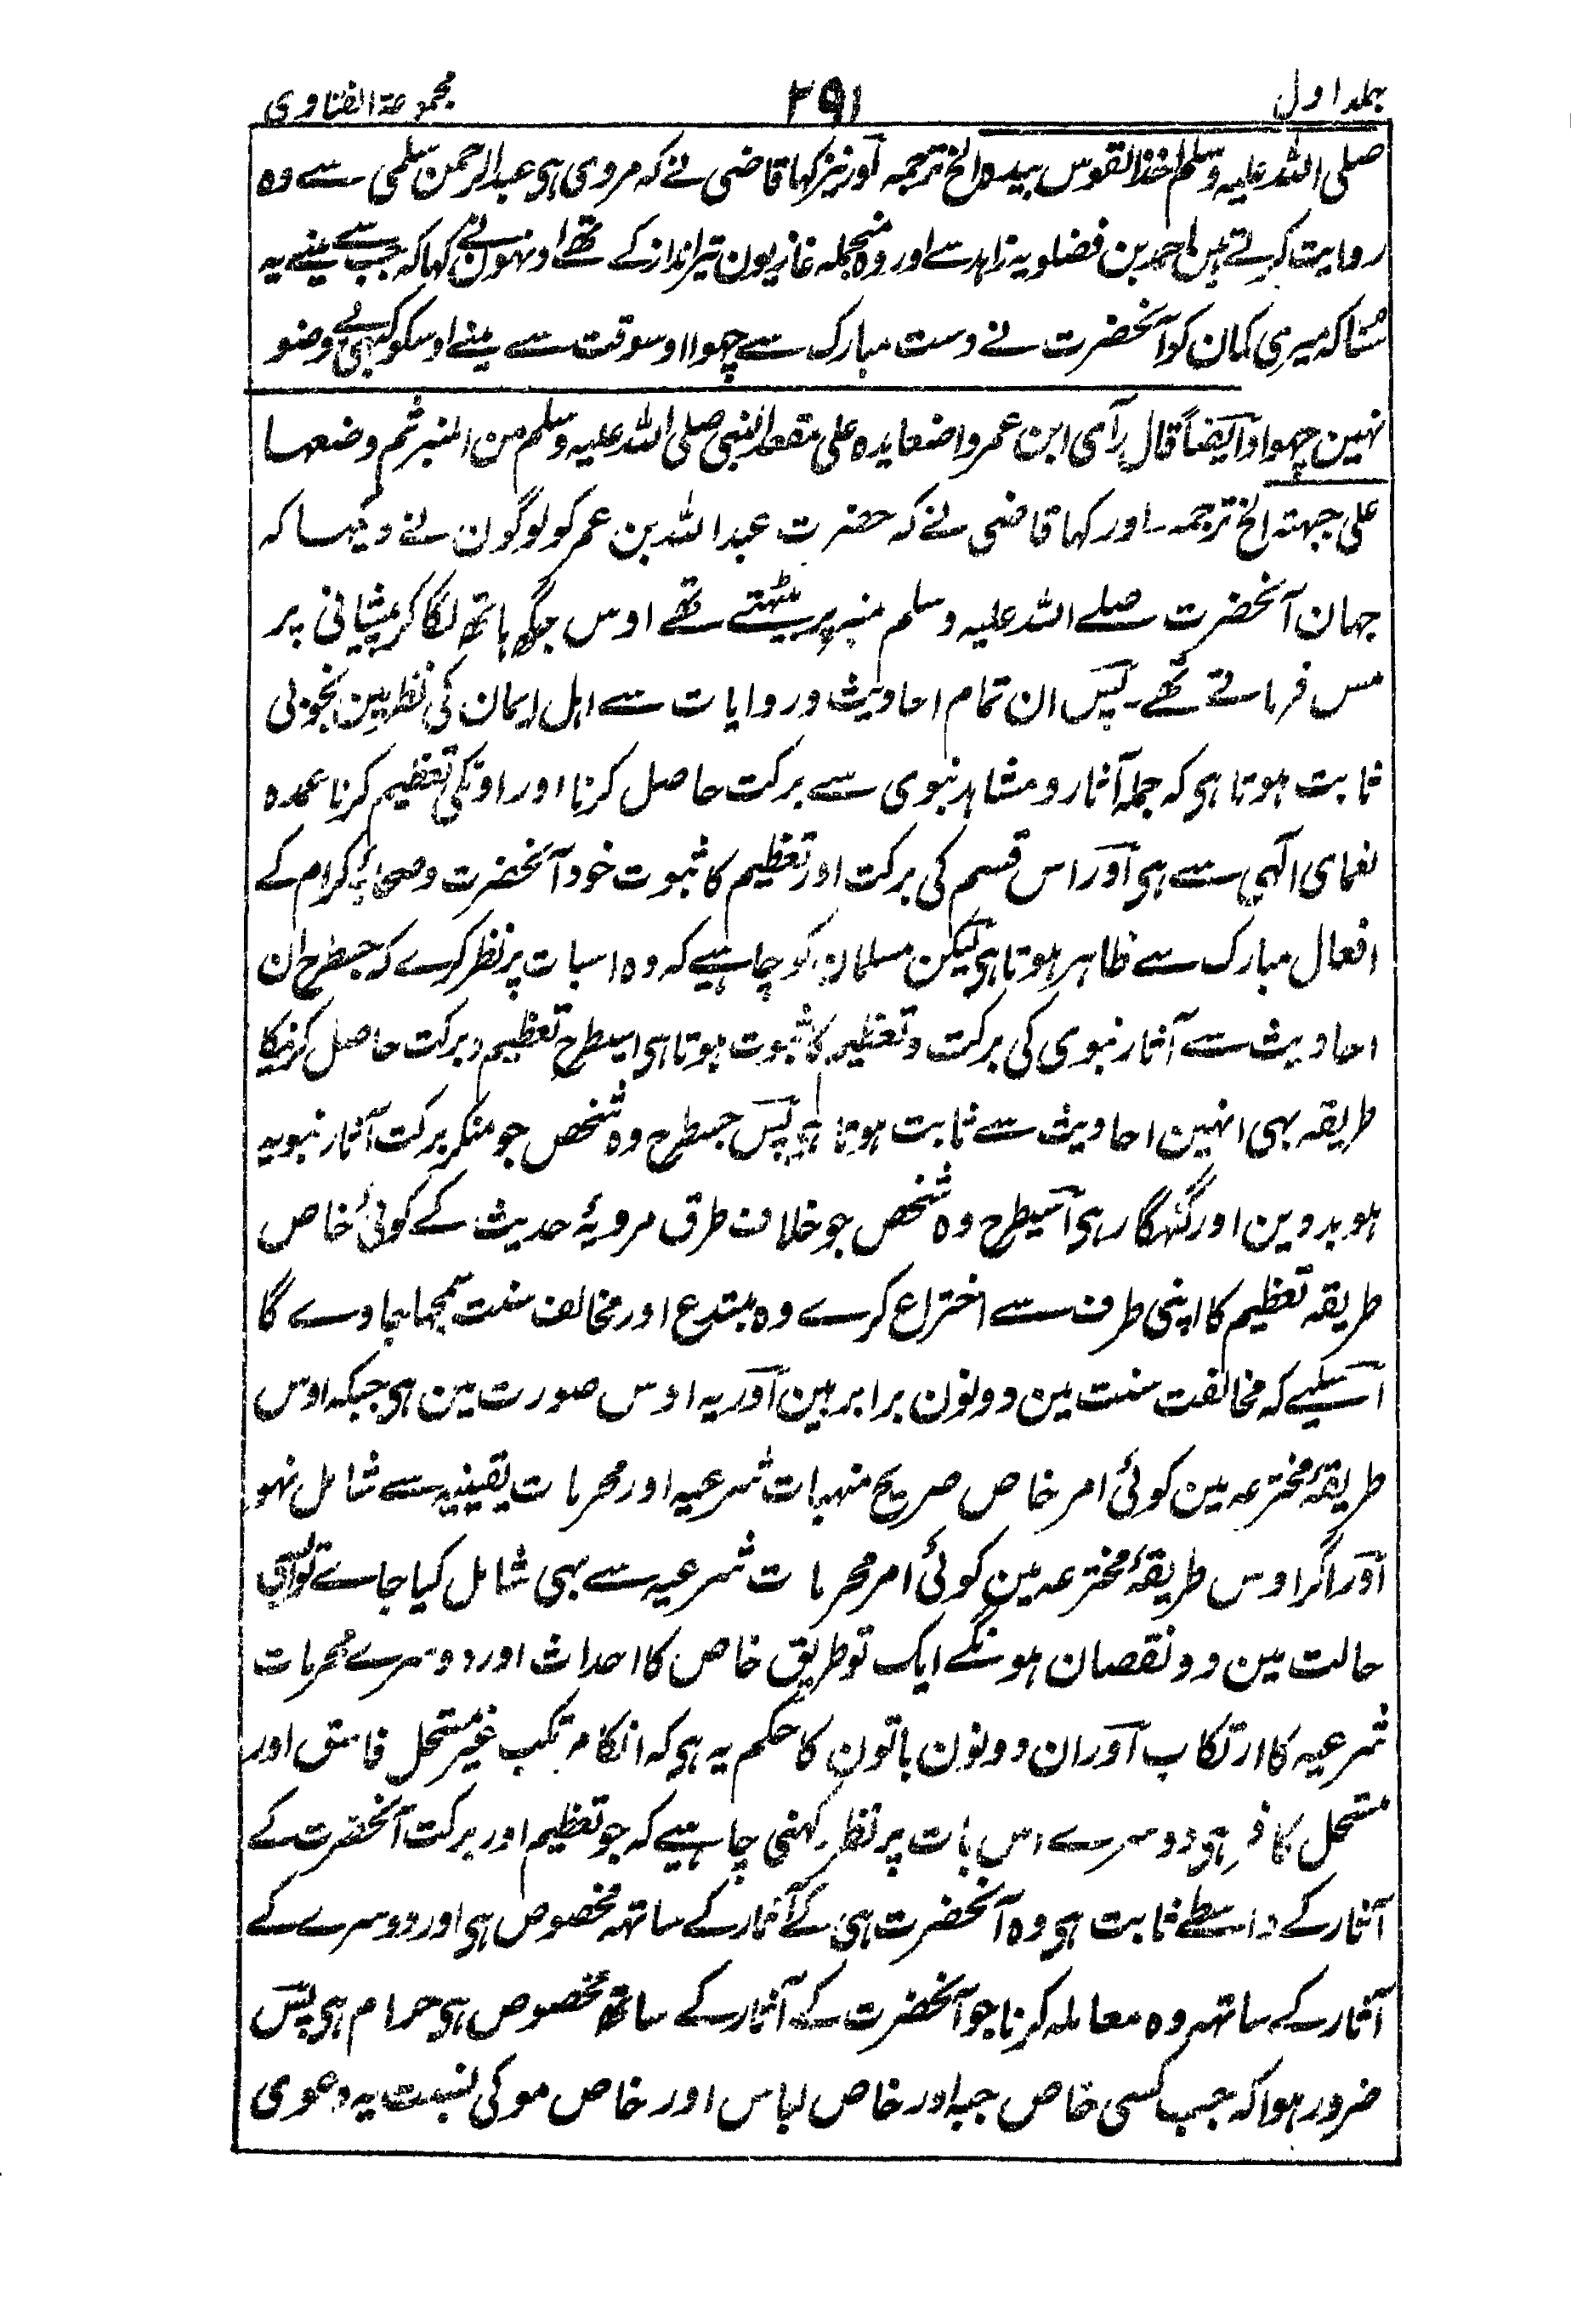 جلد اول
۲۹۱
مجموعۃ الفتاوی
صلی اللہ علیہ وسلم اخذ القوس بیدہ الخ ترجمہ اور نیز کہا قاضی نے کہ مروی ہی عبد الرحمن سلمی سے وہ
روایت کرتے ہین احمد بن فضلویہ زاہد سے اور وہ منجملہ غازیون تیر انداز کے تھے اونہون نے کہا کہ جب سے مینے یہ
سنا کہ میری کمان کو آنحضرت نے دست مبارک سے چھوا اوسوقت سے مینے اوسکو کبھی بے وضو
نہین چھوا وایضاً قال رأی ابن عمر واضعا یدہ علی مقعد النبی صلی اللہ علیہ وسلم من المنبر ثم وضعہا
علی جبہتہ الخ ترجمہ۔ اور کہا قاضی نے کہ حضرت عبد اللہ بن عمر کو لوگون نے دیکہا کہ
جہان آنحضرت صلے اللہ علیہ وسلم منبر پر بیٹہتے تھے اوس جگہ ہاتھ لگا کر پیشانی پر
مس فرماتے تھے۔ پس ان تمام احادیث و روایات سے اہل ایمان کی نظر مین بخوبی
ثابت ہوتا ہی کہ جملہ آثار و مشاہد نبوی سے برکت حاصل کرنا اور اونکی تعظیم کرنا عمدہ
نعمای الٰہی سے ہی اور اس قسم کی برکت اور تعظیم کا ثبوت خود آنحضرت و صحابۂ کرام کے
افعال مبارک سے ظاہر ہوتا ہی لیکن مسلمان کو چاہیے کہ وہ اسبات پر نظر کرے کہ جسطرح ان
احادیث سے آثار نبوی کی برکت و تعظیم کا ثبوت ہوتا ہی اسیطرح تعظیم و برکت حاصل کرنیکا
طریقہ بہی انہین احادیث سے ثابت ہوتا ہی پس جسطرح وہ شخص جو منکر برکت آثار نبویہ
ہو بد دین اور گنہگار ہی اسیطرح وہ شخص جو خلاف طرق مرویۂ حدیث کے کوئی خاص
طریقہ تعظیم کا اپنی طرف سے اختراع کرے وہ مبتدع اور مخالف سنت سمجہا جاوے گا
اسلیے کہ مخالفت سنت مین دونون برابر ہین اور یہ اوس صورت مین ہی جبکہ اوس
طریقۂ مخترعہ مین کوئی امر خاص صریح منہیات شرعیہ اور محرمات یقینیہ سے شامل نہو
اور اگر اوس طریقۂ مخترعہ مین کوئی امر محرمات شرعیہ سے بہی شامل کیا جاے تو ایسی
حالت مین دو نقصان ہونگے ایک تو طریق خاص کا احداث اور دوسرے محرمات
شرعیہ کا ارتکاب اور ان دونون باتون کا حکم یہ ہی کہ انکا مرتکب غیر مستحل فاسق اور
مستحل کافر ہی دوسرے اس بات پر نظر رکہنی چاہیے کہ جو تعظیم اور برکت آنحضرت کے
آثار کے واسطے ثابت ہی وہ آنحضرت ہی کے آثار کے ساتہہ مخصوص ہی اور دوسرے کے
آثار کے ساتہہ وہ معاملہ کرنا جو آنحضرت کے آثار کے ساتھ مخصوص ہی حرام ہی پس
ضرور ہوا کہ جب کسی خاص جبہ اور خاص لباس اور خاص مو کی نسبت یہ دعوی